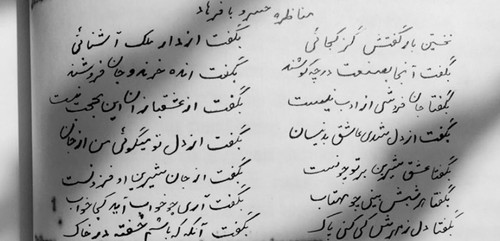 مناظره خسرو با فرهاد
نخستین بار گفتش کز کجائی بگفت از دار ملک آشنائی
بگفت آنجا بصنعت در چه کوشند بگفت انده خرند و جان فروشند
بگفتا جان فروشی از ادب نیست بگفت از عشقبازان این عجب نیست
بگفت از دل شدی عاشق بدینسان بگفت از دل تو میگوئی من از جان
بگفتا عشق شیرین بر تو چونست بگفت از جان شیرین او فزونست
بگفتا هر شبش بینی چو مهتاب بگفت آری چو خواب آید کجا خواب
بگفتا دل ز مهرش کی کنی پاک بگفت آنگه که باشم خفته در خاک